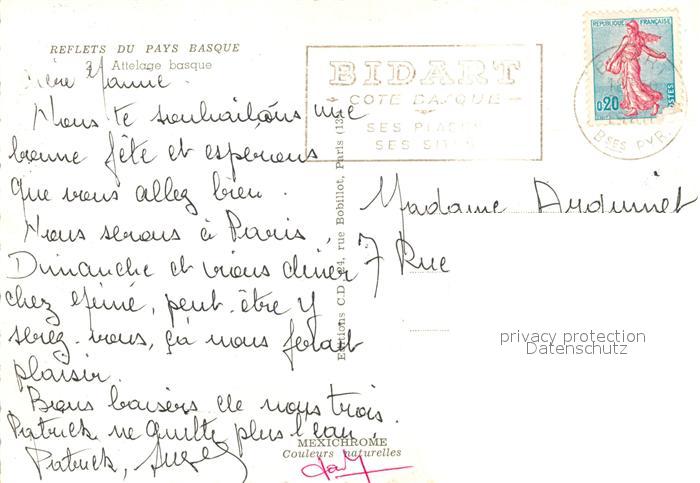 REFLETS DU PAYS BASQUE
Attelage basque
Nous te souhaitons une
bonne fête et espérons
que vous allez bien.
Nous serons à Paris,
Dimanche et irons dîner
chez Mémé, peut-être y
serez-vous, ça nous ferait
plaisir.
Bons baisers de nous trois.
Patrick ne quitte plus l'eau.
Patrick,
Editions C.D. 24, rue Bobillot, Paris (13
MEXICHROME
Couleurs naturelles
BIDART
COTE BASQUE
SES PLAGES
SES SITES
REPUBLIQUE FRANÇAISE
0,20
POSTES
BSES PYR
Madame
7 Rue
privacy protection
Datenschutz